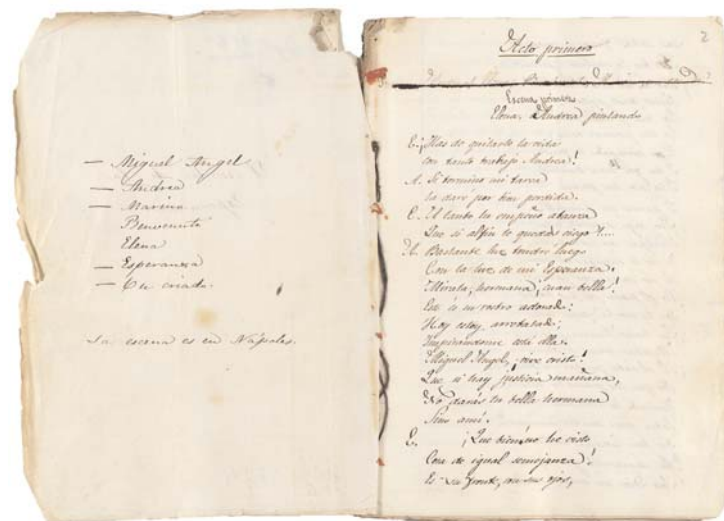 — Miguel Angel
— Andrea
— Marina
Benvenuto
Elena
— Esperanza
— Un criado.
La escena es en Nápoles.
2
Acto primero
Escena primera
Elena, Andrea pintando
E. ¡Has de quitarte la vida
con tanto trabajo Andrea!
A. Si termino mi tarea
la daré por bien perdida.
E. Y tanto tu empeño avanza
Que si al fin te quedas ciego?....
A. Bastante luz tendré luego
Con la luz de mi Esperanza.
Mírala, hermana, ¡cuan bella!
Este és su rostro adorado:
Hoy estoy, arrebatado;
Inspirándome está ella.
¡Miguel Angel, ¡vive cristo!
Que si hay justicia mañana,
No darás tu bella hermana
Sino a mí.
E. ¡Que bien! no he visto
Cosa de igual semejanza!
Es su frente, son sus ojos,